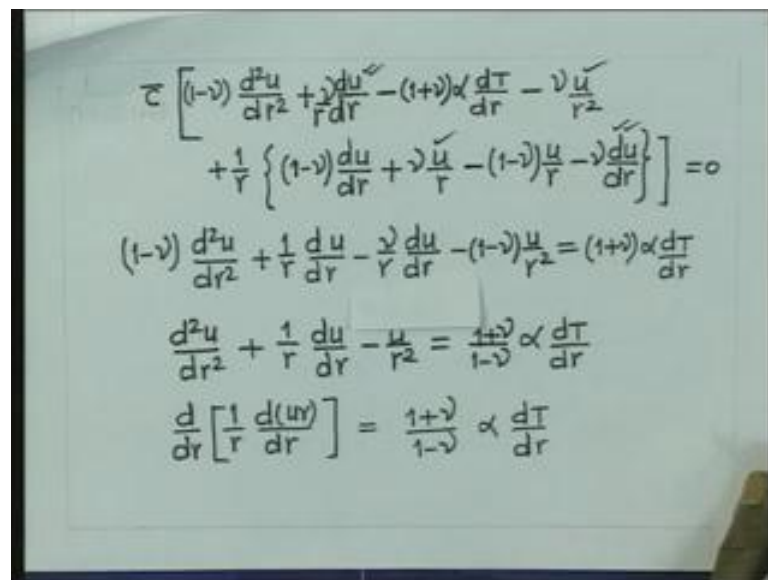 τ [(1-ν) d²u/dr² + ν/r du/dr - (1+ν)α dT/dr - ν u/r²
+ 1/r {(1-ν) du/dr + ν u/r - (1-ν) u/r - ν du/dr}] = 0
(1-ν) d²u/dr² + 1/r du/dr - ν/r du/dr - (1-ν) u/r² = (1+ν)α dT/dr
d²u/dr² + 1/r du/dr - u/r² = 1+ν/1-ν α dT/dr
d/dr [1/r d(ur)/dr] = 1+ν/1-ν α dT/dr